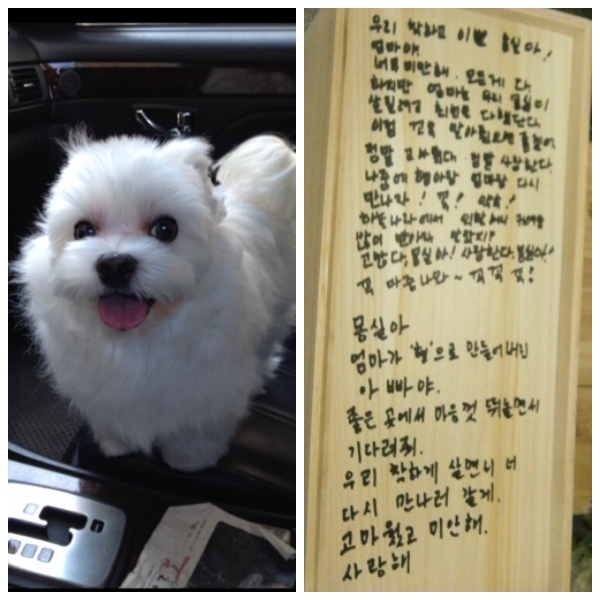 우리 착하고 이쁜 몽실아!
엄마야.
너무 미안해. 모든게 다
하지만 엄마는 우리 몽실이
살릴려고 최선을 다했단다
이점 꼭 알아줬으면 좋겠어
정말 고마웠다. 정말 사랑한다.
나중에 형아랑 엄마랑 다시
만나자! 꼭! 약속!
하늘나라에서
많이 받아라 알았지?
고맙다, 몽실아! 사랑한다. 몽실아!!
꼭 마중나와~ 꼭꼭 꼭!
몽실아
엄마가 '형'으로 만들어버린
아빠야.
좋은 곳에서 마음껏 뛰놀면서
기다려줘.
우리 착하게 살면서 너
다시 만나러 갈게.
고마웠고 미안해.
사랑해